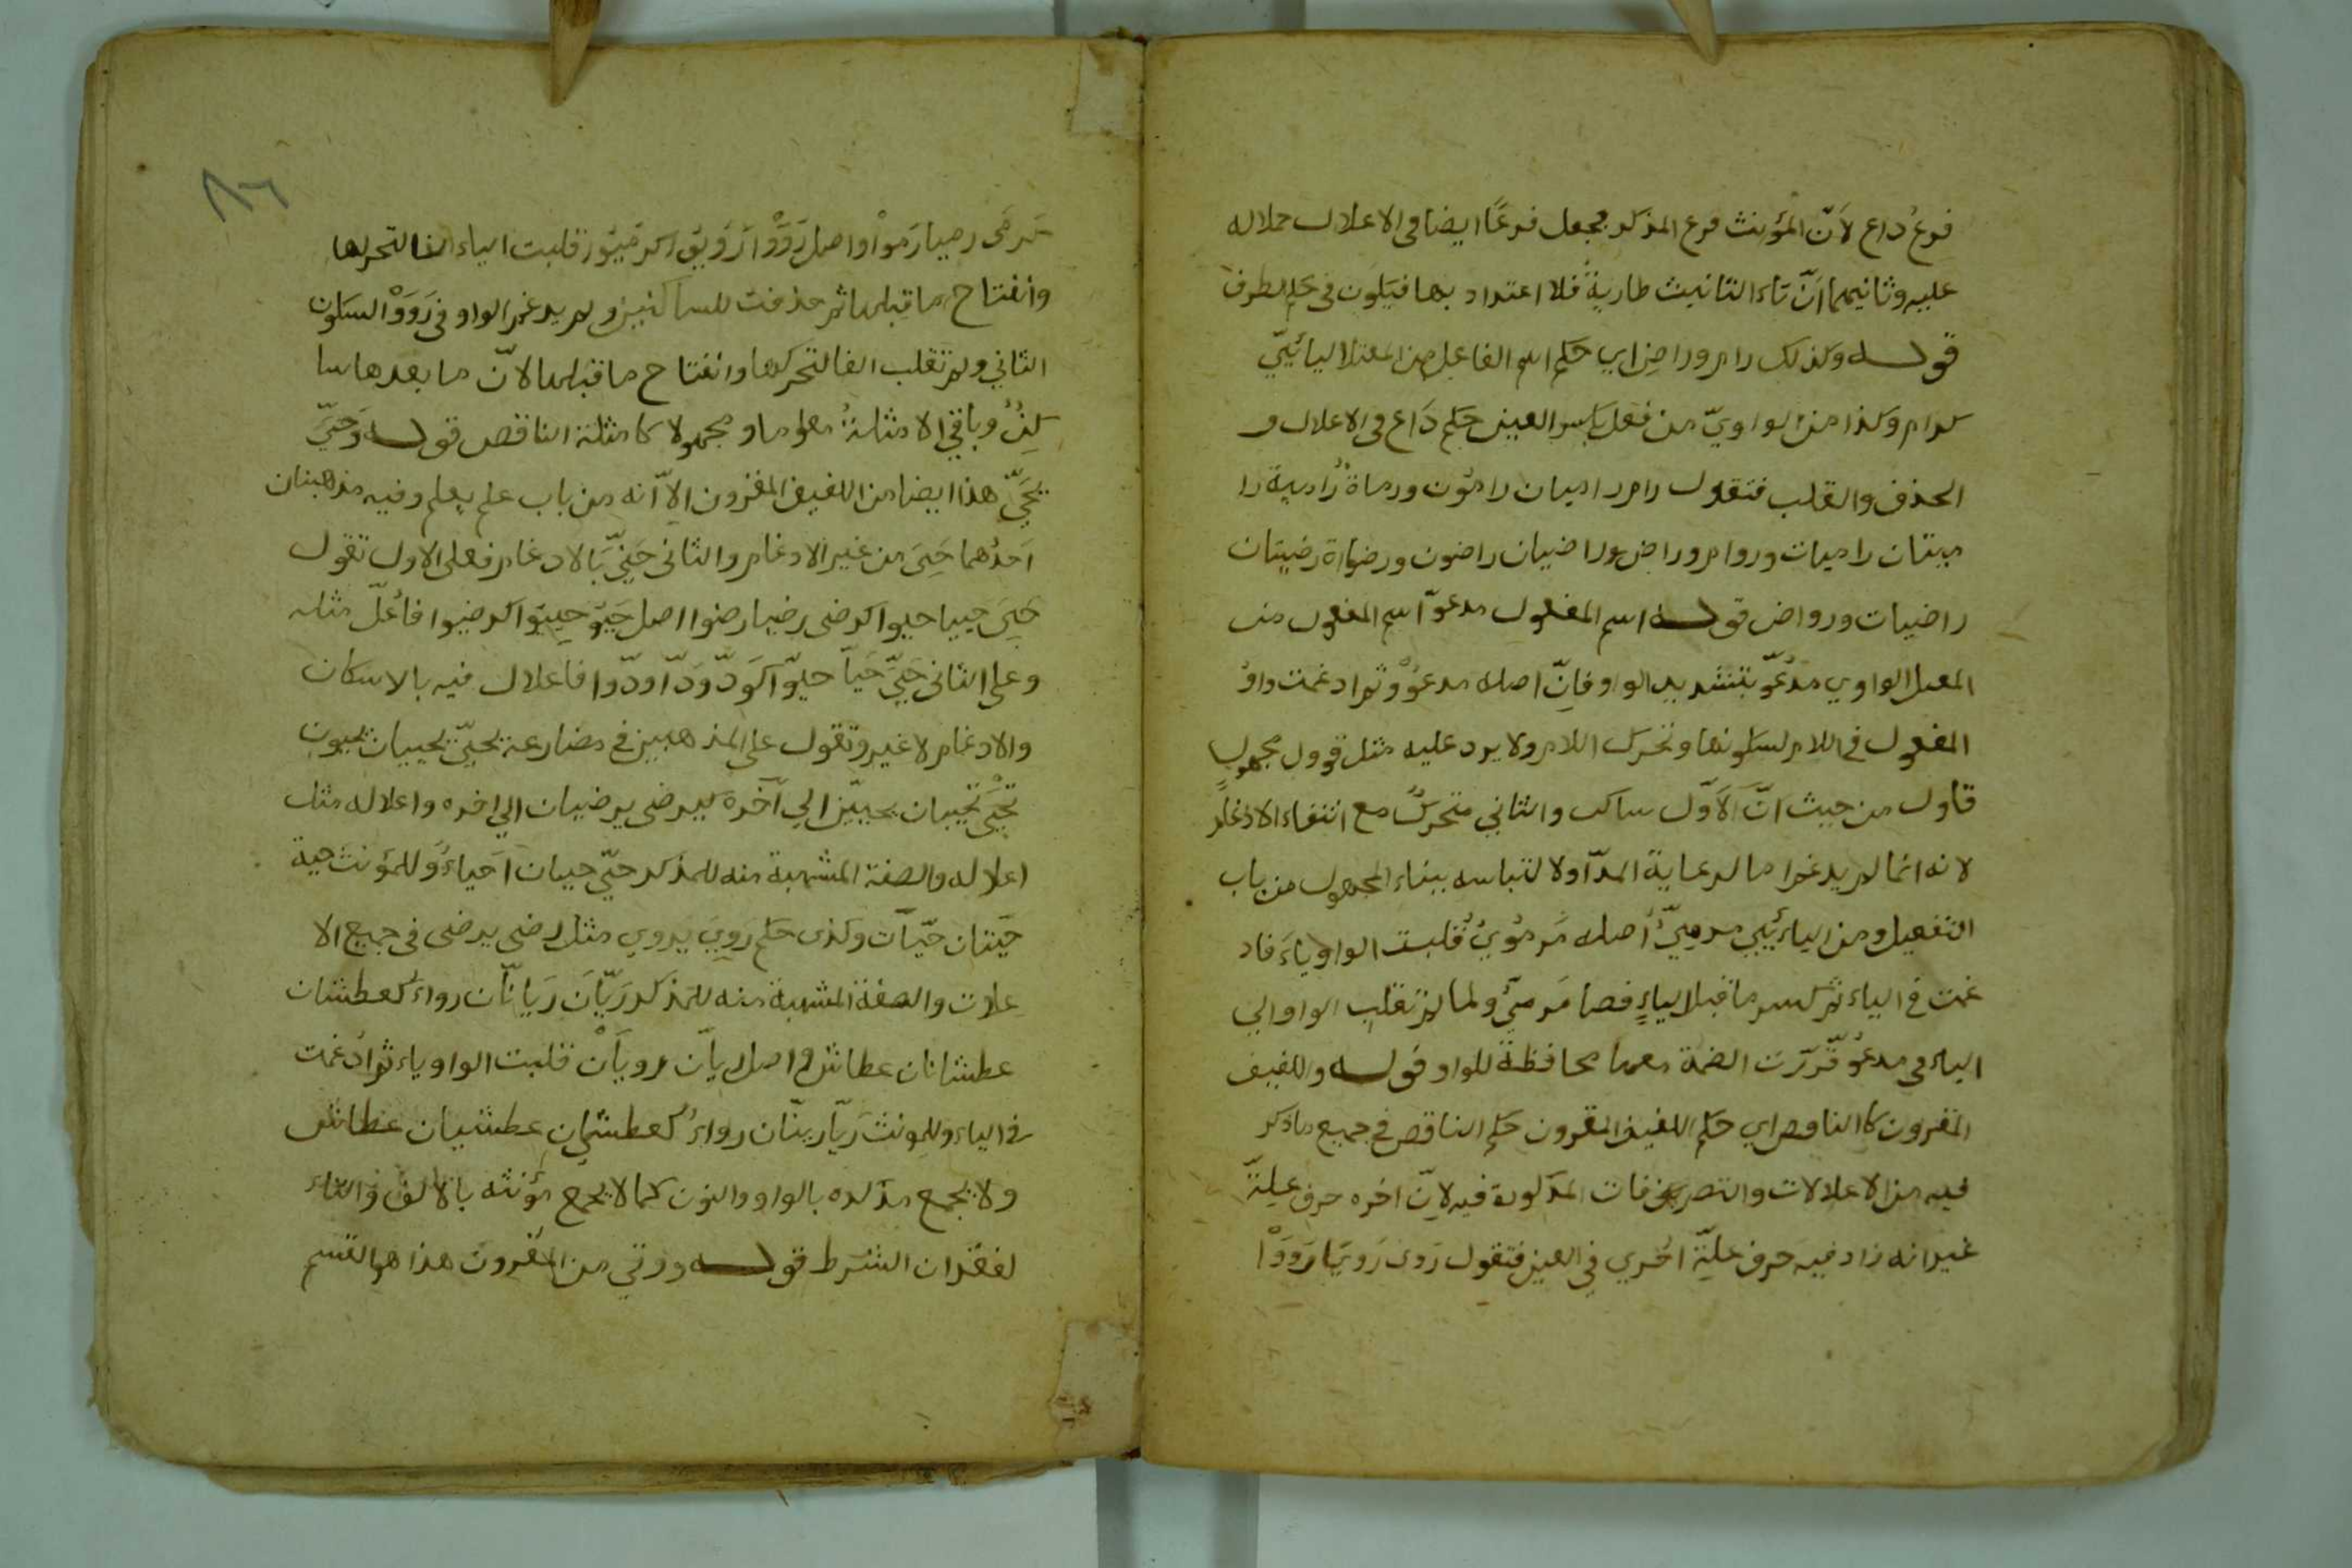 فرع داع لانّ المؤنث فرع المذكر فجعل فرعًا ايضا في الاعلال حملا له
عليه وثانيهما انّ تاء التانيث طاريةٌ فلا اعتداد بها فيكون في حكم الطرف
قوله وكذلك رام وراض اي حكم اسم الفاعل من المعتل اليائيّ
كرام وكذا من الواويّ من فعل بكسر العين حكم داع في الاعلال و
الحذف والقلب فتقول رام راميان رامون ورماة رامية را
ميتان راميات وروام وراض وراضيان راضون ورضاة رضيتان
راضيات ورواض قوله اسم المفعول مدعوّ اسم المفعول من
المعتل الواوي مدعوّ بتشديد الواو فانّ اصله مدعوو ثم ادغمت واو
المفعول في اللام لسكونها وتحرك اللام ولا يرد عليه مثل قوول مجهول
قاول من حيث انّ الاوّل ساكن والثاني متحرك مع انتفاء الادغام
لانه انما لم يدغم امّا لرعاية المدّ او لالتباسه ببناء المجهول من باب
التفعيل ومن اليائيّ مرميّ اصله مرمويٌ قلبت الواو ياءً فاد
غمت في الياء ثم كسر ما قبل الياء فصا مرميّ ولما لم تقلب الواو الي
الياء في مدعوّ قرّرت الضمة معها محافظةً للواو قوله واللفيف
المقرون كا الناقص اي حكم اللفيف المقرون حكم الناقص في جميع ما ذكر
فيه من الاعلالات والتصريفات المذكورة فيه لانّ اخره حرف علّة
غير انه زاد فيه حرف علّة اخري في العين فتقول روى رويا رووا
٨٦
كرمى رميا رموا واصل رووا رويوا كرميوا قلبت الياء الفا لتحركها
وانفتاح ما قبلها ثم حذفت للساكنين ولم يدغم الواو في رووا لسكون
الثاني ولم تقلب الفا لتحركها وانفتاح ما قبلها لانّ ما بعدها سا
كنٌ وباقي الامثلة معلوما ومجهولا كامثلة الناقص قوله وحييّ
يحيّ هذا ايضا من اللفيف المقرون الاّ انه من باب علم يعلم وفيه مذهبنان
احدهما حيي من غير الادغام والثاني حيّ بالادغام فعلى الاول تقول
حيي حييا حيوا كرضى رضيا رضوا اصل حيو حييوا كرضيوا فاعلّ مثله
وعلى الثاني حيّ حيّا حيّوا كودّ ودّا ودّوا فاعلال فيه بالاسكان
والادغام لا غير وتقول على المذهبين في مضارعة يحيىّ يحييان يحيون
تحيى تحييان يحيين الي آخره كيرضى يرضيان الي اخره واعلاله مثل
اعلاله والصفة المشبهة منه للمذكر حيّ حيان احياءٌ وللمؤنث حية
حيّتان حيّات وكذى حكم روي يروي مثل رضى يرضى في جميع الا
علات والصفة المشبهة منه للمذكر ريّان ريانّان رواء كعطشان
عطشانان عطاش واصل ريان رويان قلبت الواو ياء ثم ادغمت
في الياء وللمونث ريّا ريّان رواءٌ كعطشى عطشيان عطاش
ولا يجمع مذكره بالواو والنون كما لا يجمع مؤنثه بالالف والتاء
لفقدان الشرط قوله ووقي من المفروق هذا هو القسم